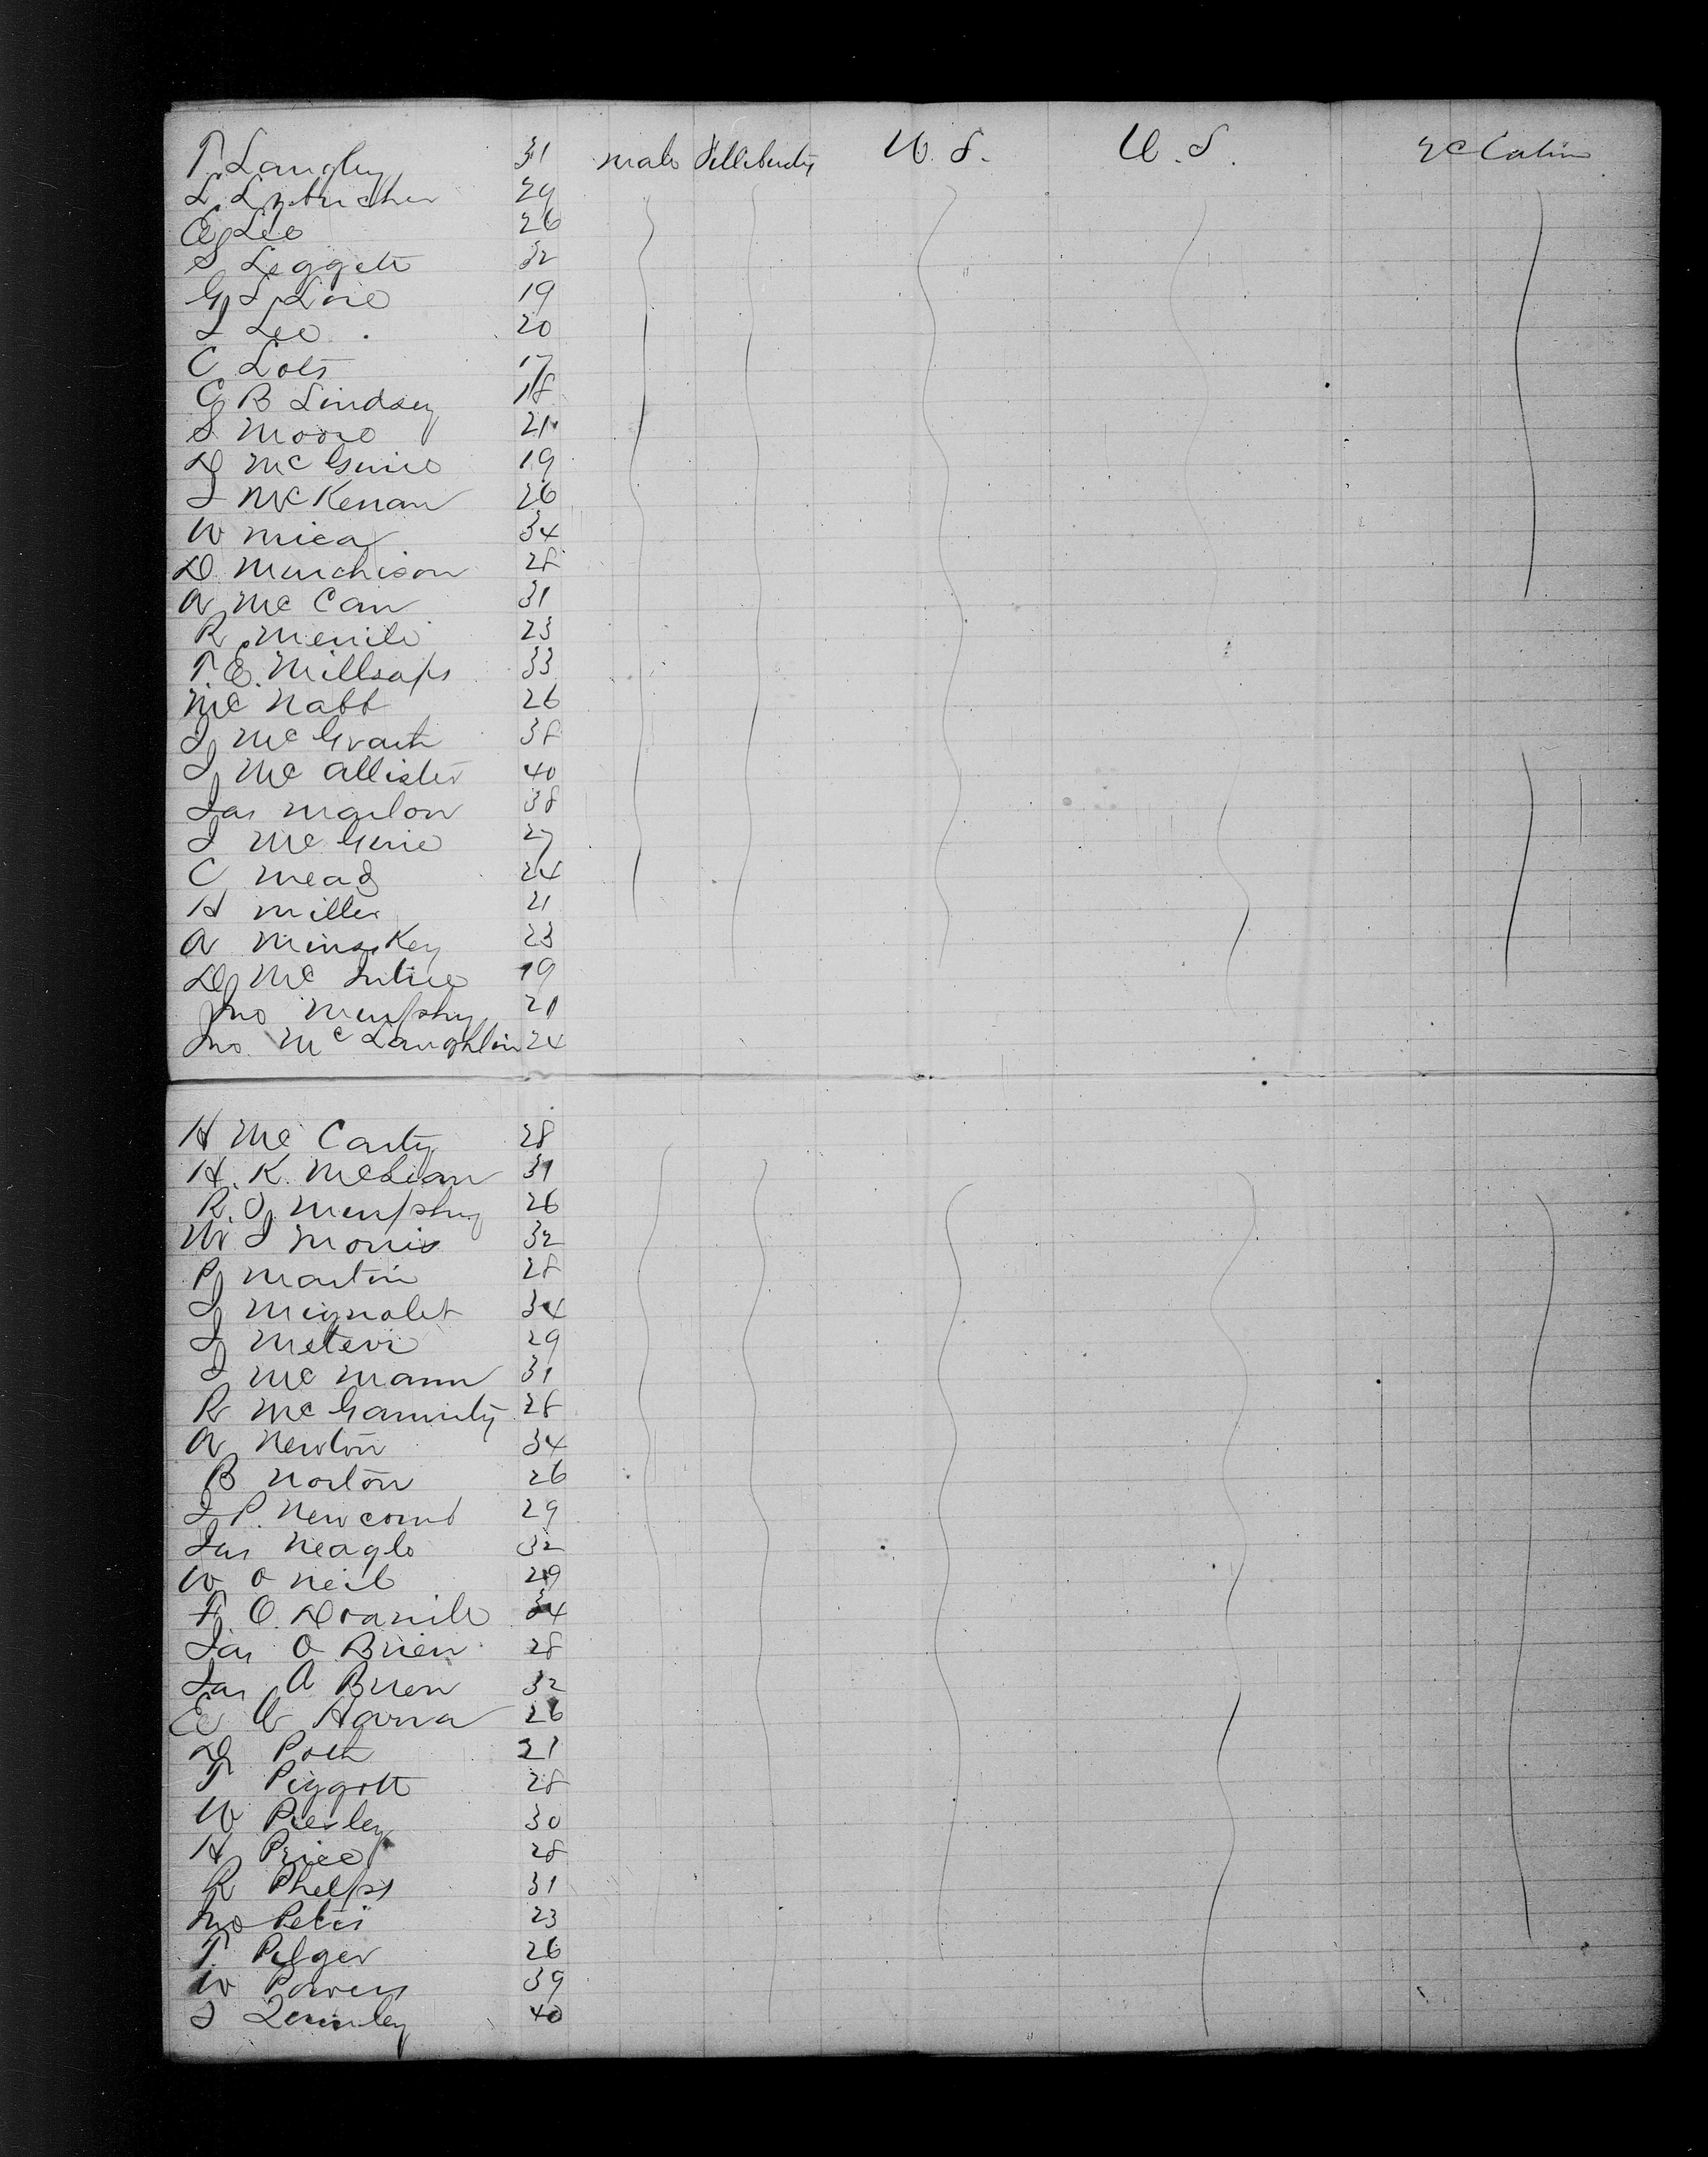 T. Langley 31 male Filliberty U. S. U. S. 2d Cabin
L. 29
C Lee 26
S Leggett 32
G L Love 19
J Leo 20
C Lots 17
C B Lindsey 18
S Moore 21
D McGuire 19
J McKenan 26
W Mica 34
D Murchison 28
A McCan 31
R Merrile 23
T. E. Millsaps 33
Mc Nabb 26
J McGrath 38
J McAllister 40
Jas Marlow 38
J McGuire 27
C Mead 24
H Miller 21
A Minskey 23
D McIntire 19
Jno Murphy 21
Jno. McLaughlin 24
H McCarty 28
H. K. McLean 31
R. J. Murphy 26
W J Morris 32
P Martin 28
J Mignalet 34
J Metevi 29
J McMann 31
R McGarrity 28
A Newton 34
B Norton 26
J P. Newcomb 29
Jas Neagle 32
W O Neil 29
F. O. 34
Jas O Brien 28
Jas O Brien 32
E O Harra 26
D Poth 21
T Piggott 28
W Presley 30
H Price 28
R Phelps 31
Jno Petis 23
T. Pilger 26
W Powers 39
J Quinley 40